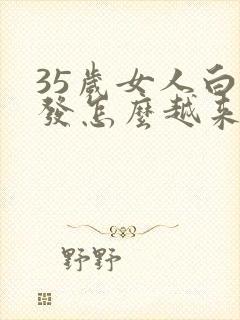 35歲女人白
發怎麼越來
野野